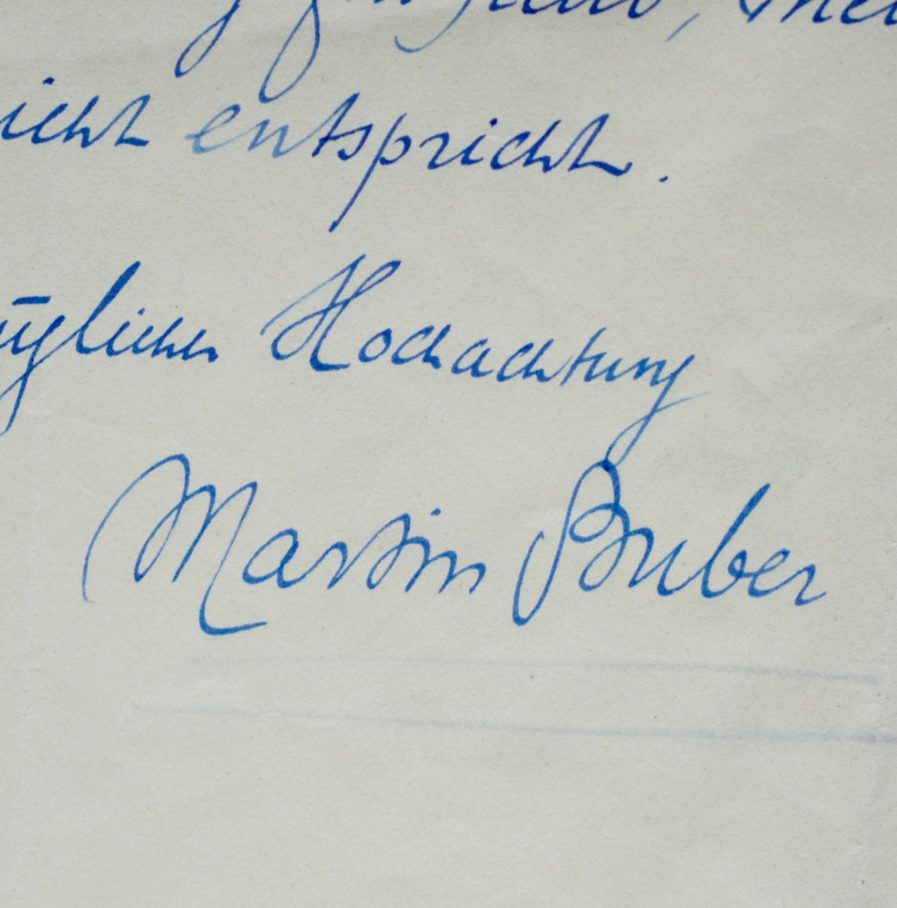 icht entspricht.
üglicher Hochachtung
Martin Buber